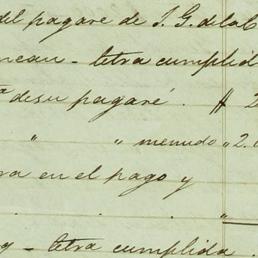 del pagaré de J. G. delaC
neau - letra cumplid
desu pagaré. # 2
" " menudo " 2.
ra en el pago y
. . . "
y - letra cumplida.